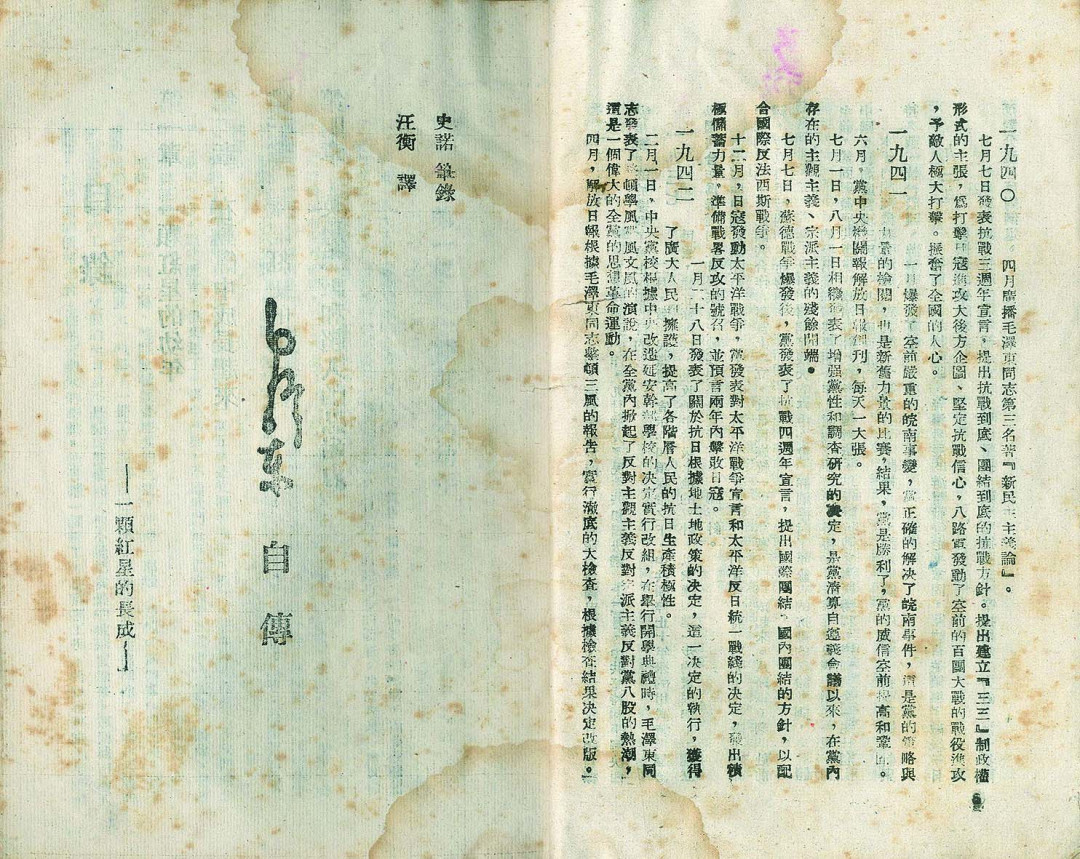 一九四〇　四月廣播毛澤東同志第三名著『新民主主義論』。
七月七日發表抗戰三週年宣言，提出抗戰到底、團結到底的抗戰方針。提出建立『三三』制政權
形式的主張，爲打擊日寇進攻大後方企圖、堅定抗戰信心，八路軍發動了空前的百團大戰的戰役進攻
，予敵人極大打擊。振奮了全國的人心。
一九四一　一月爆發了空前嚴重的皖南事變，黨正確的解決了皖南事件，這是黨的策略與
力量的檢閱，也是新舊力量的比賽，結果，黨是勝利了，黨的威信空前提高和鞏固。
六月，黨中央機關報解放日報創刊，每天一大張。
七月一日，八月一日相繼發表了增强黨性和調查研究的決定，是黨淸算自遵義會議以來，在黨內
存在的主觀主義、宗派主義的殘餘開端。
七月七日，蘇德戰爭爆發後，黨發表了抗戰四週年宣言，提出國際團結、國內團結的方針，以配
合國際反法西斯戰爭。
十二月，日寇發動太平洋戰爭，黨發表對太平洋戰爭宣言和太平洋反日統一戰綫的決定，發出積
極儲蓄力量，準備戰畧反攻的號召，並預言兩年內擊敗日寇。
一九四二　一月二十八日發表了關於抗日根據地土地政策的決定，這一決定的執行，獲得
了廣大人民的擁護，提高了各階層人民的抗日生產積極性。
二月一日，中央黨校根據中央改造延安幹部學校的決定實行改組，在舉行開學典禮時，毛澤東同
志發表了整頓學風黨風文風的演說，在全黨內掀起了反對主觀主義反對宗派主義反對黨八股的熱潮，
這是一個偉大的全黨的思想革命運動。
四月，解放日報根據毛澤東同志整頓三風的報告，實行澈底的大檢查，根據檢查結果決定改版。
史諾　筆錄
汪衡　譯
毛澤東自傳
——一顆紅星的長成——